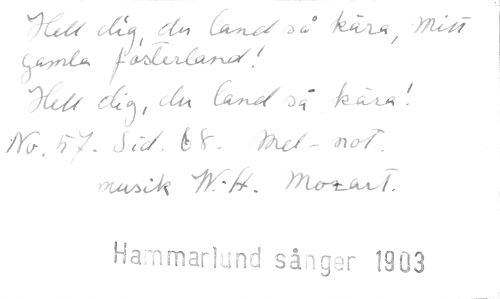 Hell dig, du land så kära, Mitt
gamla fosterland!
Hell dig, du land så kära!
No. 57. Sid. 68. Mel-not.
musik W.A. Mozart.
Hammarlund sånger 1903